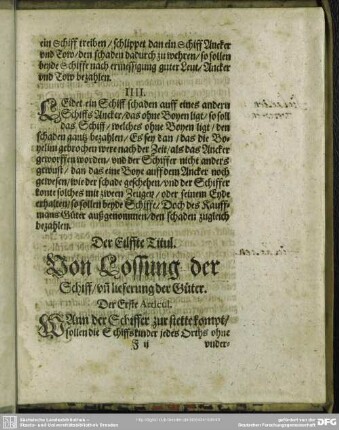 ein Schiff treiben / schlippet dan ein Schiff Ancker
vnd Tow / den schaden dadurch zu wehren / so sollen
beyde Schiffe nach ermessigung guter Leut / Ancker
vnd Tow bezahlen.
IIII.
LEidet ein Schiff schaden auff eines andern
Schiffs Ancker / das ohne Boyen ligt / so soll
das Schiff / welches ohne Boyen ligt / den
schaden gantz bezahlen / Es sey dan / das die Bo-
yelin gebrochen were nach der Zeit / als das Ancker
geworffen worden / vnd der Schiffer nicht anders
gewust / dan das eine Boye auff dem Ancker noch
gewesen / wie der schade geschehen / vnd der Schiffer
konte solches mit zween Zeugen / oder seinem Eyde
erhalten / so sollen beyde Schiffe / Doch des Kauff-
mans Güter außgenommen / den schaden zugleich
bezahlen.
Der Eilffte Titul.
Von Lossung der
Schiff / vñ lieferung der Güter.
Der Erste Articul.
WAnn der Schiffer zur stette kompt /
sollen die Schiffskinder jedes Orths ohne
J ij
vnder-